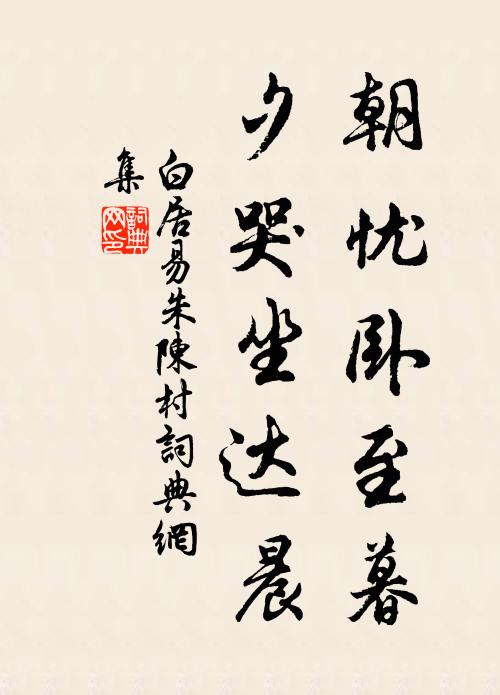 朝忧卧至暮
夕哭坐达晨
白居易朱陳村詞典網
集
詞典網印